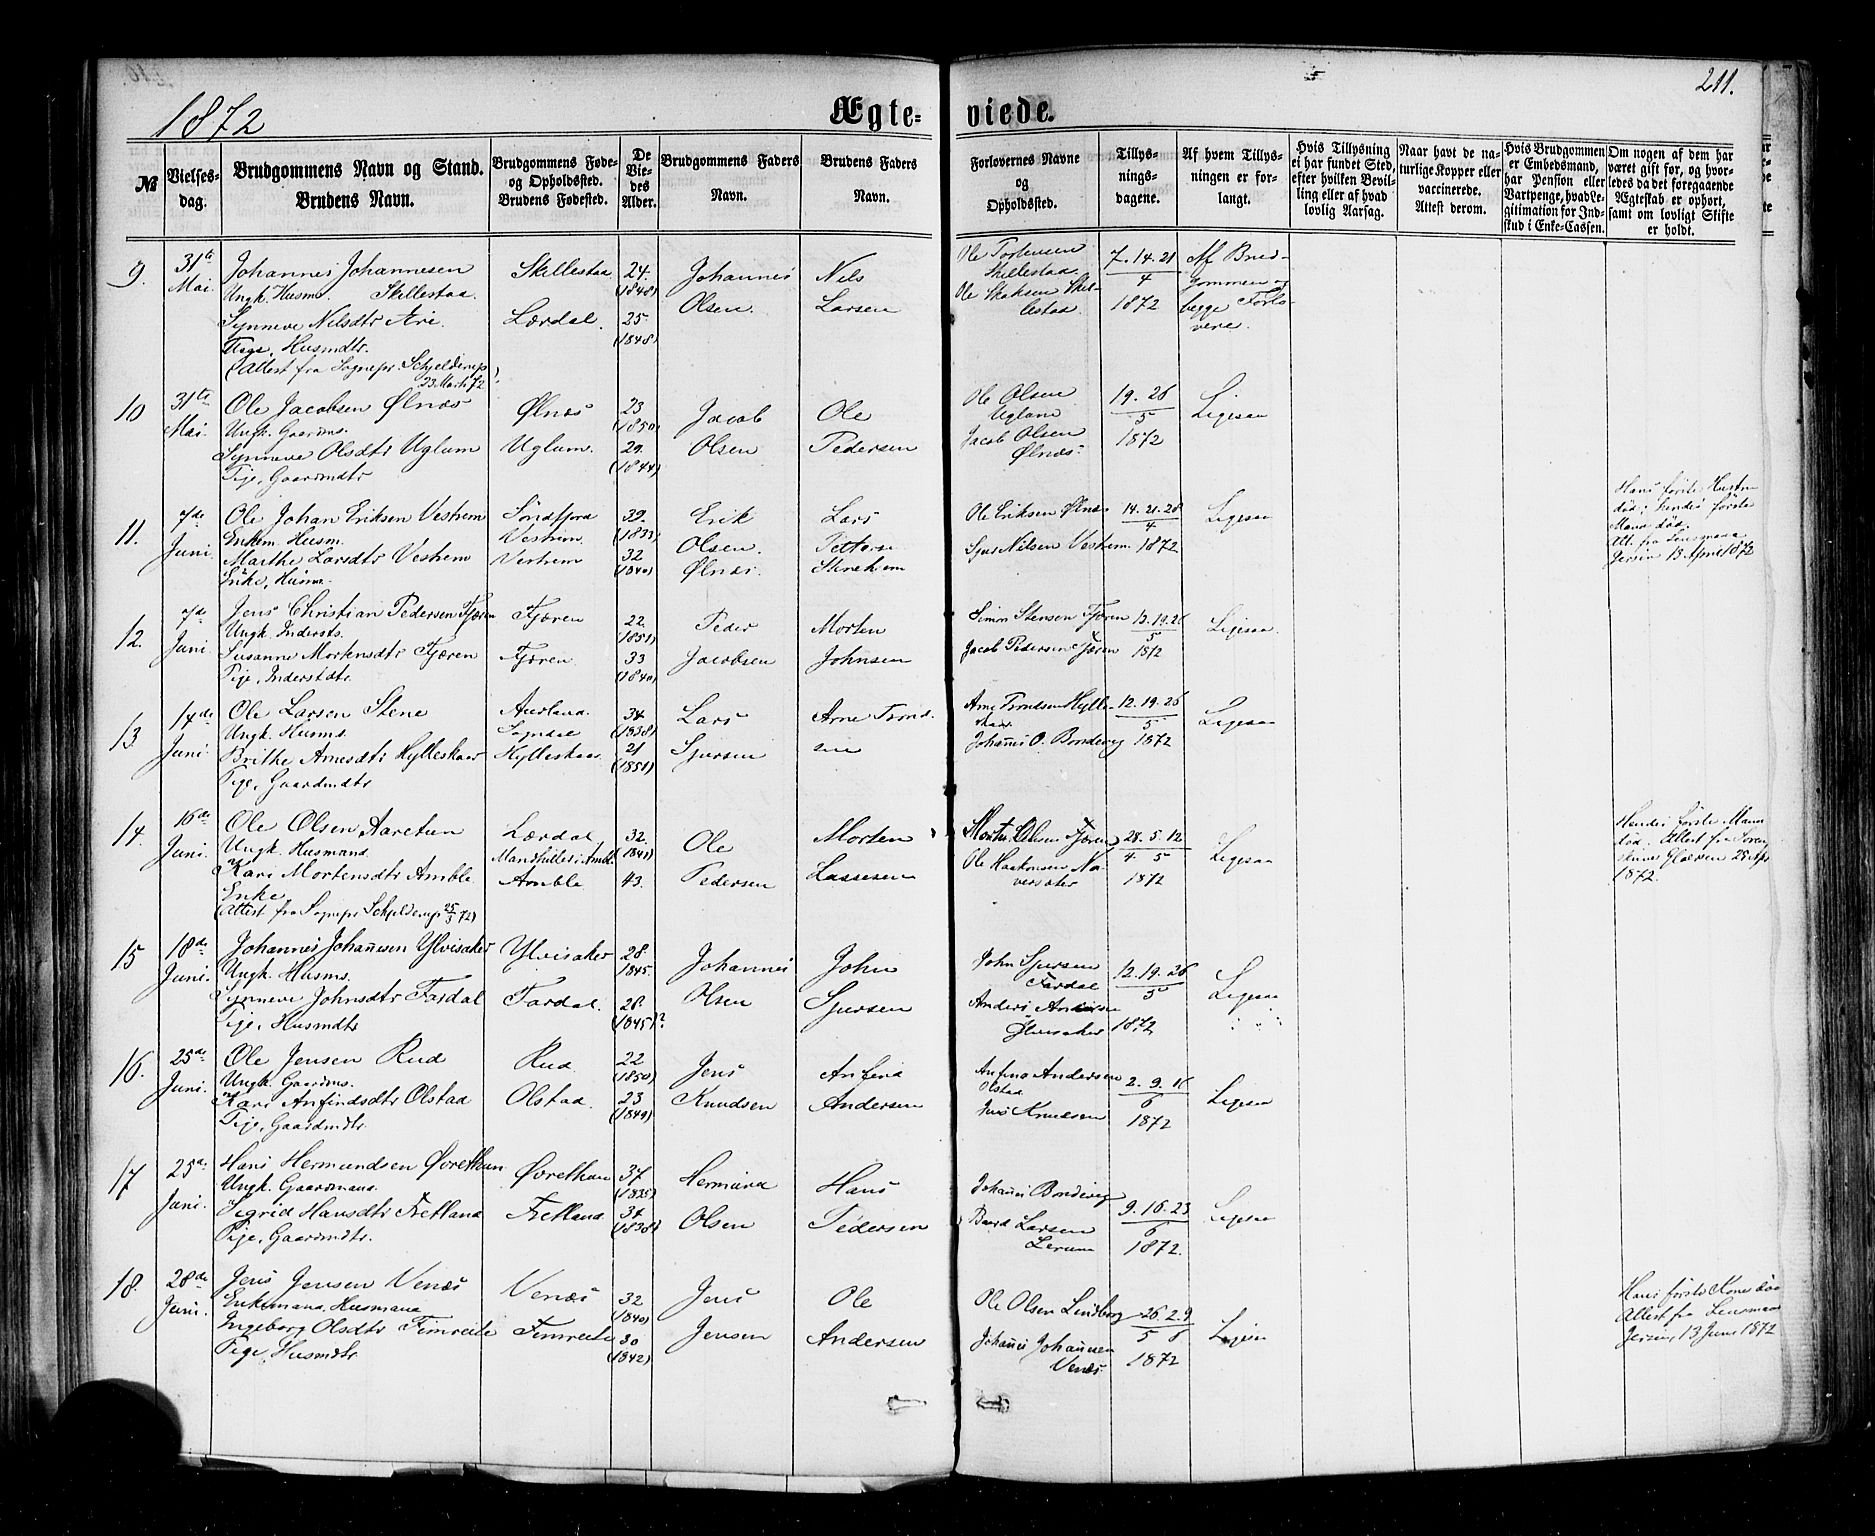 1872
Ægte-
viede.
211.
№
Vielses-
dag.
Brudgommens Navn og Stand.
Brudens Navn.
Brudgommens Føde-
og Opholdssted.
Brudens Fødested.
De
Vie-
des
Alder.
Brudgommens Faders
Navn.
Brudens Faders
Navn.
Forlovernes Navne
og
Opholdssted.
Tillys-
nings-
dagene.
Af hvem Tillys-
ningen er for-
langt.
Hvis Tillysning
ei har fundet Sted,
efter hvilken Bevil-
ling eller af hvad
lovlig Aarsag.
Naar havt de na-
turlige Kopper eller
vaccinerede.
Attest derom.
Hvis Brudgommen
er Embedsmand,
har Pension eller
Vartpenge, hvad Le-
gitimation for Ind-
skud i Enke-Cassen.
Om nogen af dem har
været gift før, og hvor-
ledes da det foregaaende
Ægteskab er ophørt,
samt om lovligt Skifte
er holdt.
9. 31te Mai.
Johannes Johannesen
Ungk. Husms. Skillestad.
Synneve Nilsdtr Æri
Pige, Husmdtr.
(Attest fra Sognepr Schjelderup
23 Marts 72)
Skillestad
Lærdal.
24.
(1848)
25.
(1848)
Johannes
Olsen.
Nils
Larsen
Ole Torstensen
Skillestad
Ole Skaksen Skil-
lestad.
7. 14. 21
4
1872
Af Brud-
gommen og
begge Forlo-
vere.
10 31te Mai.
Ole Jacobsen Ølnæs
Ungk. Gaardms.
Synneve Olsdtr Uglum
Pige, Gaardmdtr
Ølnæs
Uglum.
23
(1850)
29.
(1844)
Jacob
Olsen
Ole
Pedersen
Ole Olsen
Uglum
Jacob Olsen
Ølnæs.
19. 26
5
1872
Ligesaa
11. 7de Juni.
Ole Johan Eriksen Vestrem
Enkem. Husm.
Marthe Larsdtr Vestrem
Enke, Husm.
Søndfjord
Vestrem.
Vestrem
39.
(1833)
32
(1840)
Erik
Olsen.
Ølnæs.
Lars
Stenehjem
Ole Eriksen Ølnæs
Sjur Nilsen Vestrem.
14. 21. 28
4
1872
Ligesaa
Hans første Hustru
død; hendes første
Mand død.
Att. fra Lensmand
Jersin 13 April 1872
12. 7de Juni.
Jens Christian Pedersen Fjæren
Ungk. Indersts.
Susanne Mortensdtr Fjæren
Pige, Inderstdtr.
Fjæren
Fjæren.
22.
(1851)
33
(1840)
Peder
Jacobsen
Morten
Johnsen
Simon Stensen Fjæren
Jacob Pedersen Fjæren
12. 19. 26
5
1872
Ligesaa.
13. 14de Juni.
Ole Larsen Stene
Ungk. Husms.
Brithe Arnesdtr Hylleskaar
Pige, Gaardmdtr
Aurland.
Sogndal
Hylleskaar.
34
(1838)
21
(1851)
Lars
Sjursen
Arne Trond-
sen
Arne Trondsen Hylle-
skaar
Johannes O. Bondevig
12. 19. 26
5
1872
Ligesaa
14. 16de Juni.
Ole Olsen Aaretun
Ungk. Husmand.
Kari Mortensdtr Amble
Enke
(Attest fra Sognepr Schjelderup 25/3 72)
Lærdal
Amble
32.
43.
Ole
Pedersen
Morten
Lassesen
Morten Olsen Fjæren
Ole Haakonsen Na-
versæter
28. 5. 12
4 5
1872
Ligesaa
Hendes første Mand
død. Attest fra
1872.
15 18de Juni.
Johannes Johanesen Ylvisaker
Ungk. Husms.
Synneve Johnsdtr Fardal
Pige, Husmdtr
Ylvisaker
Fardal.
28.
1845.
28.
(1845)?
Johannes
Olsen
John
Sjursen
John Sjursen
Fardal
Anders Andersen
Ylvisaker
12. 19. 26
5
1872
Ligesaa
16. 25de Juni.
Ole Jensen Rud
Ungk. Gaardms.
Kari Anfindsdtr Olstad
Pige, Gaardmdtr.
Rud
Olstad.
22
(1850)
23
(1849)
Jens
Knudsen
Anfind
Andersen
Anfind Andersen
Olstad
Jens Knudsen
2. 9. 16
6
1872
Ligesaa
17 25de Juni.
Hans Hermundsen Øvrethun
Ungk. Gaardmand.
Sigrid Hansdtr Fretland
Pige, Gaardmdtr.
Øvrethun
Fretland
37
(1835)
34
(1838)
Hermund
Olsen
Hans
Pedersen
Johannes Bondevig
Baard Larsen
Lerum
9. 16. 23
6
1872.
Ligesaa
18. 28de Juni.
Jens Jensen Venæs
Enkemand, Husmand
Ingeborg Olsdtr Fimreite
Pige, Husmdtr
Venæs
Fimreite
32
(1840)
30
(1842)
Jens
Jensen
Ole
Andersen
Ole Olsen Lindborg
Johanes Johannesen
Venæs.
26. 2. 9
5 6
1872
Ligesaa
Hans første Kone død
Attest fra Lensmand
Jersin, 13 Juni 1872